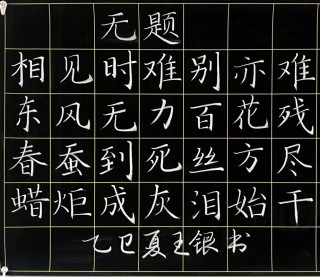 无题
相见时难别亦难
东风无力百花残
春蚕到死丝方尽
蜡炬成灰泪始干
乙巳夏王银书